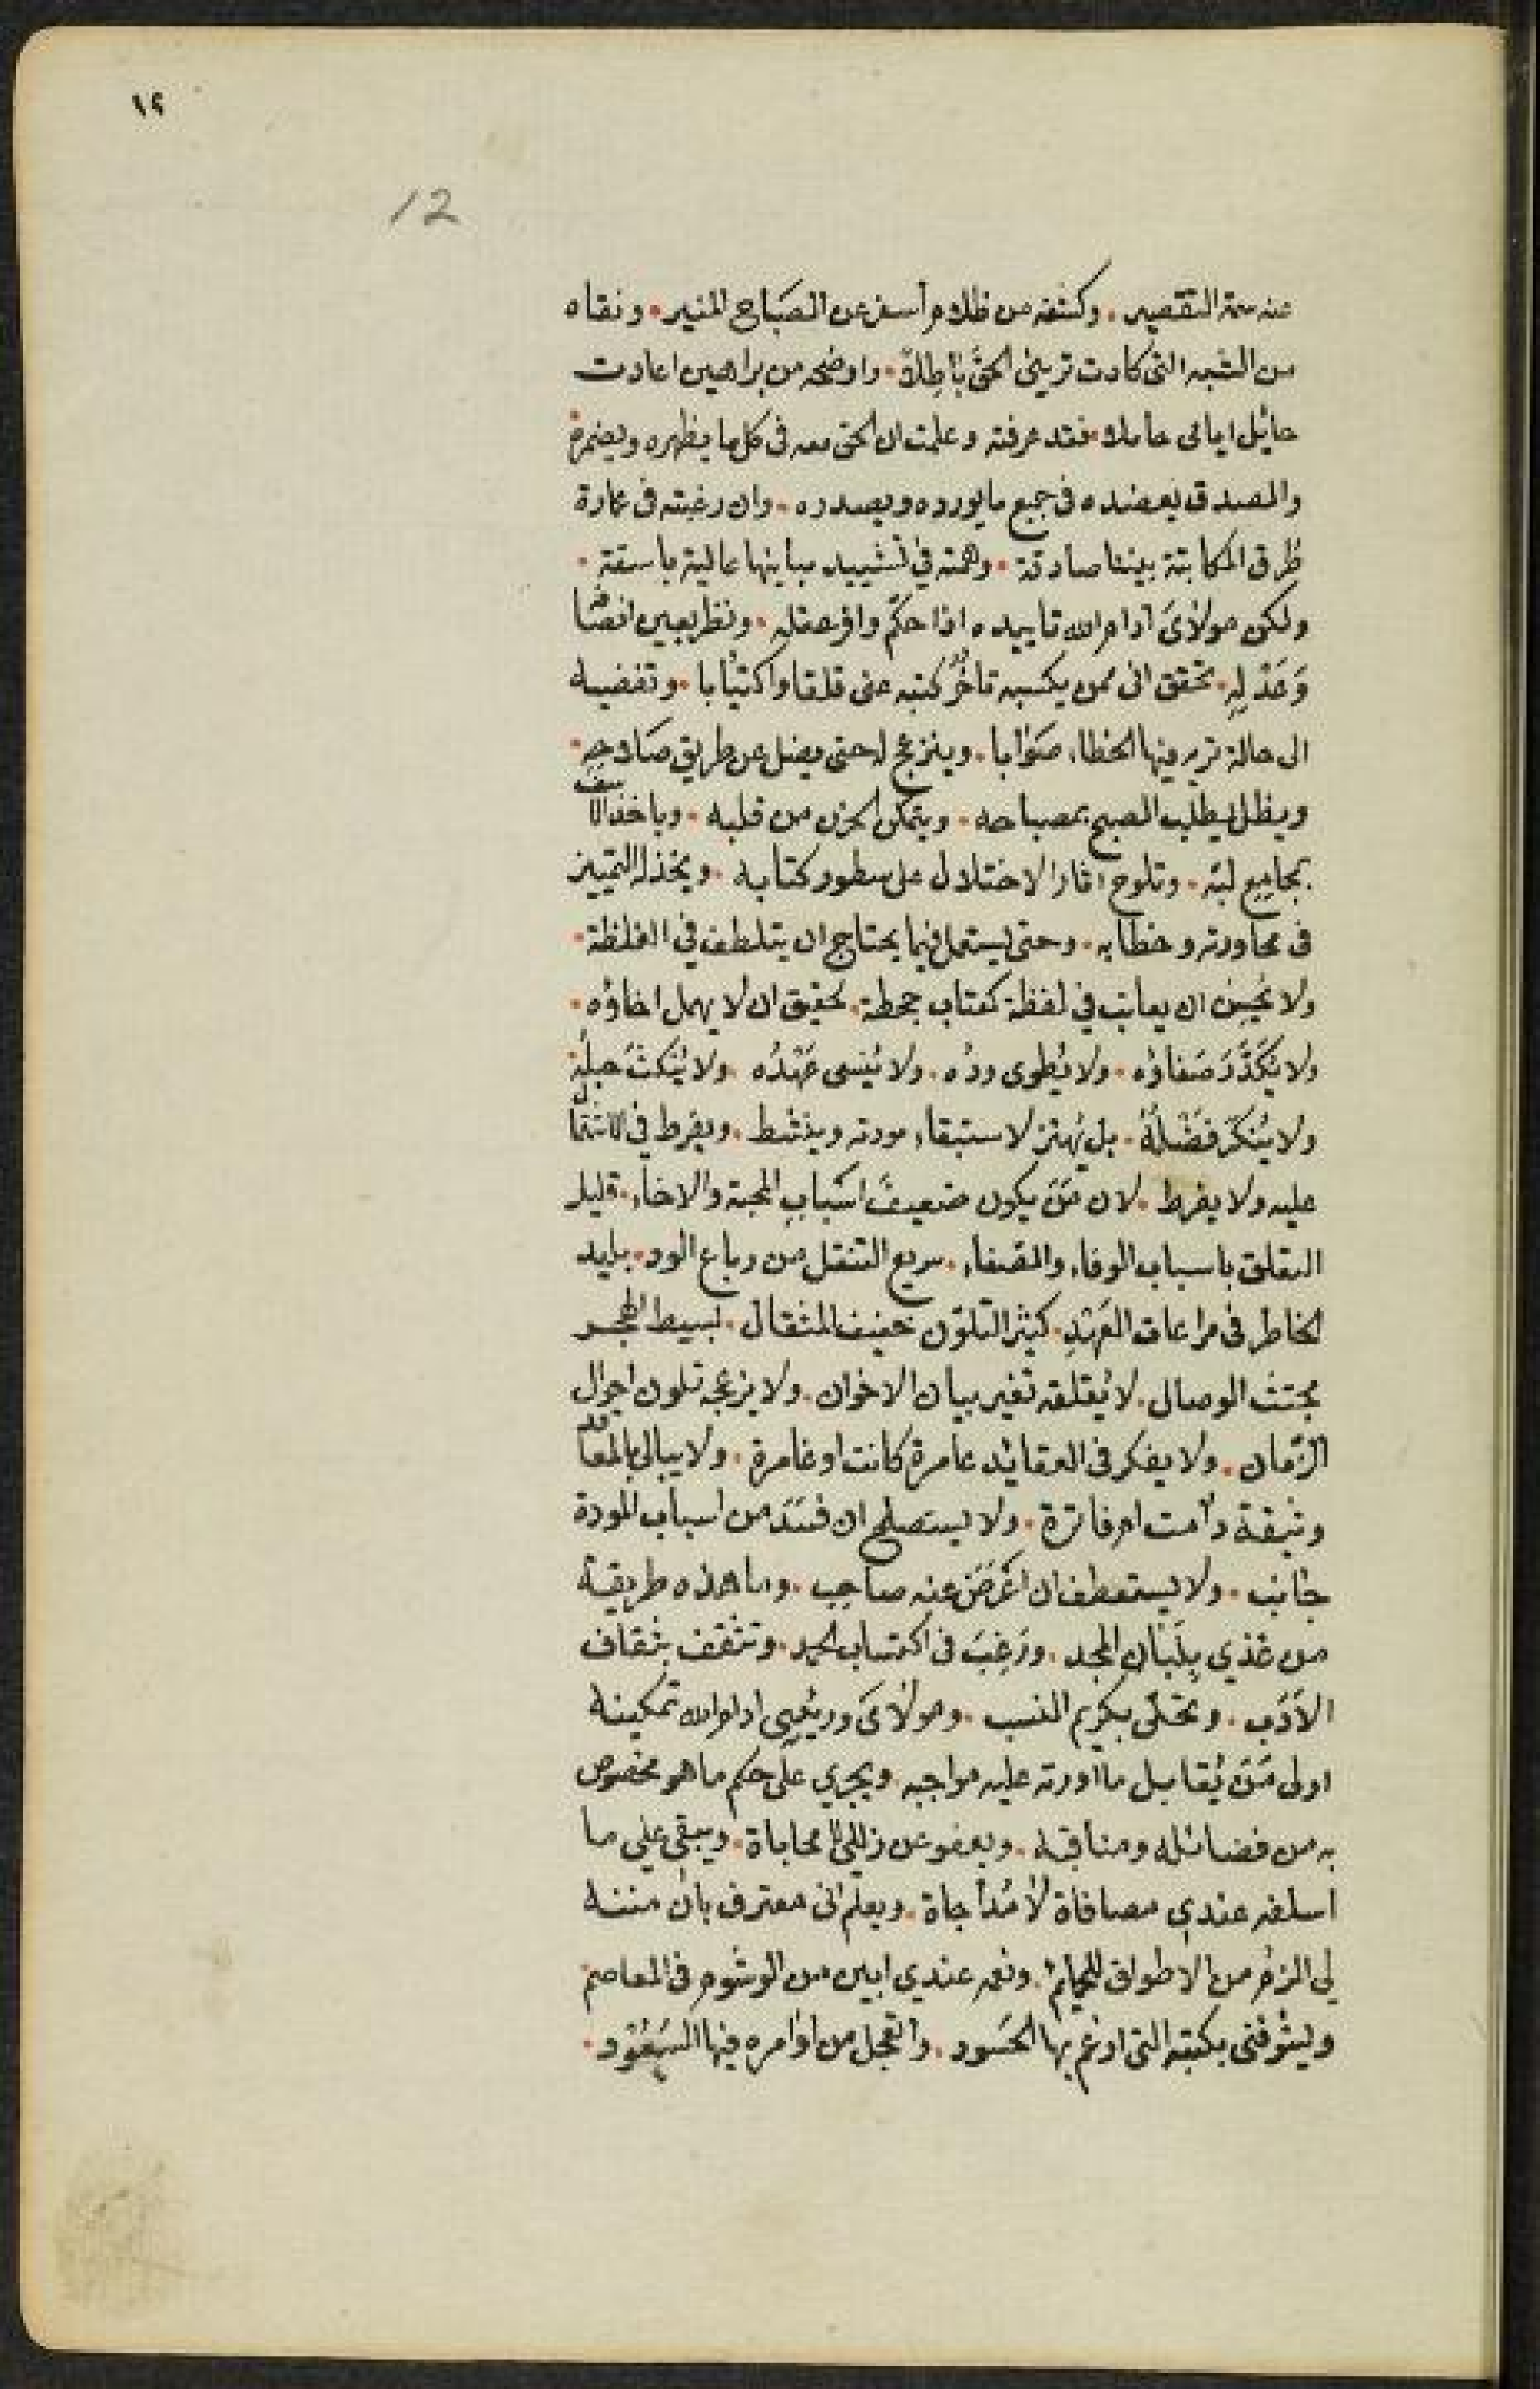 ١٢
12
عنه سمة التقصير . وكشفه من ظلام أسفر عن الصَبَاح المنير . ونفاه
من الشبه التى كادت ترينى الحق بَاطِلاً . واوضحه من براهين اعادت
حايل ايامى حاملا . فقد عرفته وعلمت ان الحق معه فى كل ما يظهره ويضمره
والصدق يعضده فى جميع ما يورده ويصدره . وان رغبته فى عمارة
طرق المكاتبة بيننا صادقة . وهمته في تشييد مبانيها عالية باسقة .
ولكن مولاىَ ادام الله تاييده اذا حكّم وافر عقله . ونظر بعين انصافه
وَعَدْلِهِ . تحقق انى ممن يكسبه تاخُّرُ كتبه عنى قلقا واكتئابا . وتفضى به
الى حالة تريه فيها الخطاء صَوَابا . وينزعج لها حتى يضل عن طريق صَلاحِهِ .
ويظل يطلب الصبح بمصباحه . ويتمكن الحزن من قلبه . وياخذ الاسف
بمجاميع لبّه . وتلوح اثار الاختلال على سطور كتابه . ويخذله التمييز
فى محاورته وخطابه . وحتى يستعمل فيما يحتاج ان يتلطف في الغلظة .
ولا يُحسِن ان يعاتِب في لفظة كعتاب جحظة . لحقيق ان لا يهمل اخاؤه .
ولا يُكَدَّرَ صَفاؤه . ولا يُطوى ودُه . ولا يُنسى عَهْدُه . ولا يُنكثَ حبلُه
ولا يُنكَرَ فَضْلُهُ . بل يُهتز لاستبقاء مودته وينشط . ويفرط في الاشتمال
عليه ولا يفرط . لان مَن يكون ضعيفَ اسبَاب المحبة والاخاء . قليل
التعلق باسباب الوفاء والصفاء . سريع التنقل من رباع الود . بليد
الخاطر فى مراعات العَهْدِ . كثير التلوّن خفيف المثقال . بسيط الهجر
مجتث الوصال . لا يُقلقه تغير بيان الاخوان . ولا يزعجه تلون احوال
الزّمان . ولا يفكر فى العقائد عامرة كانت او غامرة . ولا يبالى بالمعاقد
وثيقة دامت ام فاترة . ولا يستصلح ان فسَدَ من اسباب المودة
جانب . ولا يستعطف ان اعْرَضَ عنه صاحِب . وما هذه طريقة
من غذي بِلَبَانِ المجد . ورَغِبَ فى اكتساب الحمد . وتثقف بثقاف
الأدَب . وتحلّى بكرِيم النسب . ومولاىَ ورئيسِى ادام الله تمكينه
اولى مَن يُقابل ما اورته عليه مواجبه ويجري على حكم ما هو مخصوص
به من فضائله ومناقبه . ويعفو عن زللي لا محاباة . ويبقى علي ما
اسلفه عندي مصافاة لا مُداجاة . ويعلم انى معترف بان مننه
لي الزم من الاطواق للحمايم . ونعمه عندي ابين من الوشوم فى المعاصم
وليشرفنى بكتبه التى ارغم بها الحَسود . واتعجل من اوامره فيها السُعُود .